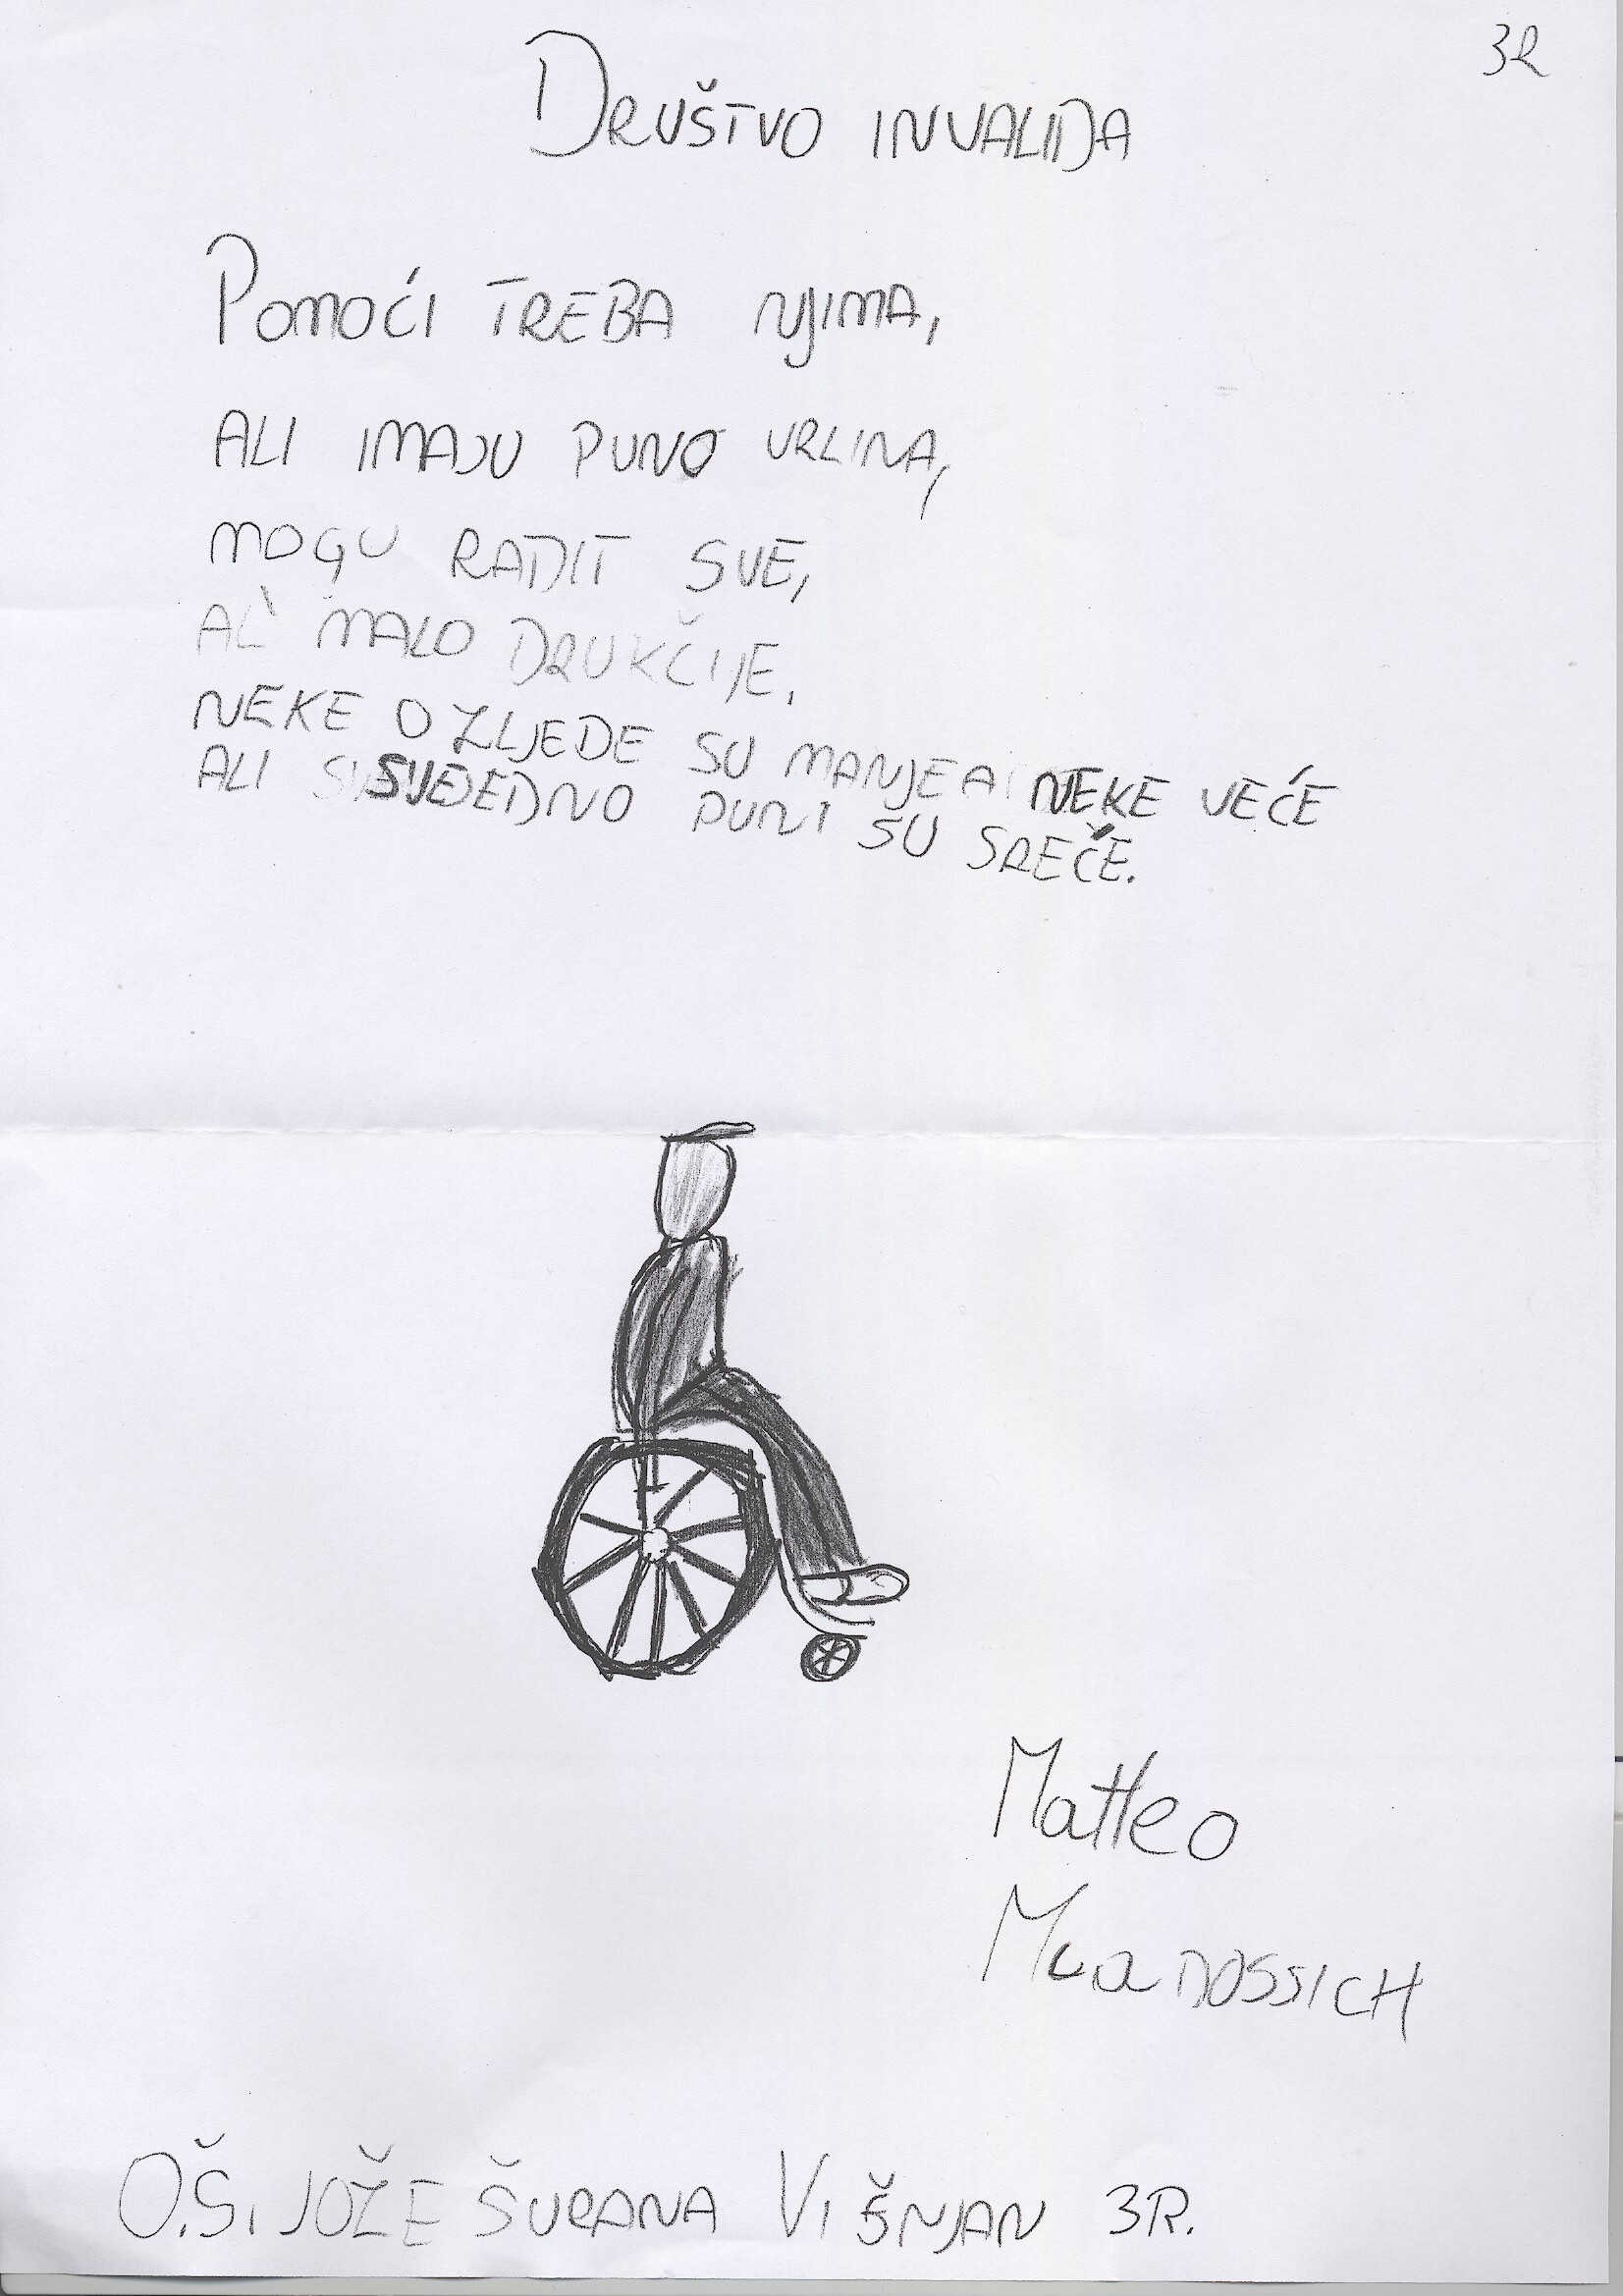 3R
DRUŠTVO INVALIDA
POMOĆI TREBA NJIMA,
ALI IMAJU PUNO VRLINA,
MOGU RADIT SVE,
AL' MALO DRUKČIJE,
NEKE OZLJEDE SU MANJE A NEKE VEĆE
ALI SVEJEDNO PUNI SU SREČE.
Matteo
O.Š. JOŽE ŠURANA VIŠNJAN 3R.